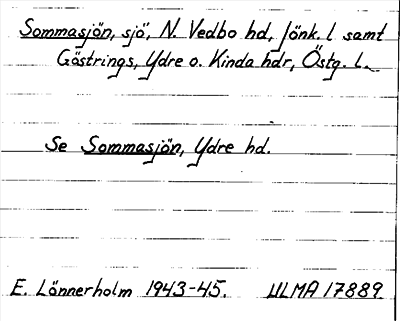 Sommasjön, sjö, N. Vedbo hd, Jönk. l samt
Göstrings, Ydre o. Kinda hdr, Östg. l.
Se Sommasjön, Ydre hd.
E. Lönnerholm 1943-45. ULMA 17889.